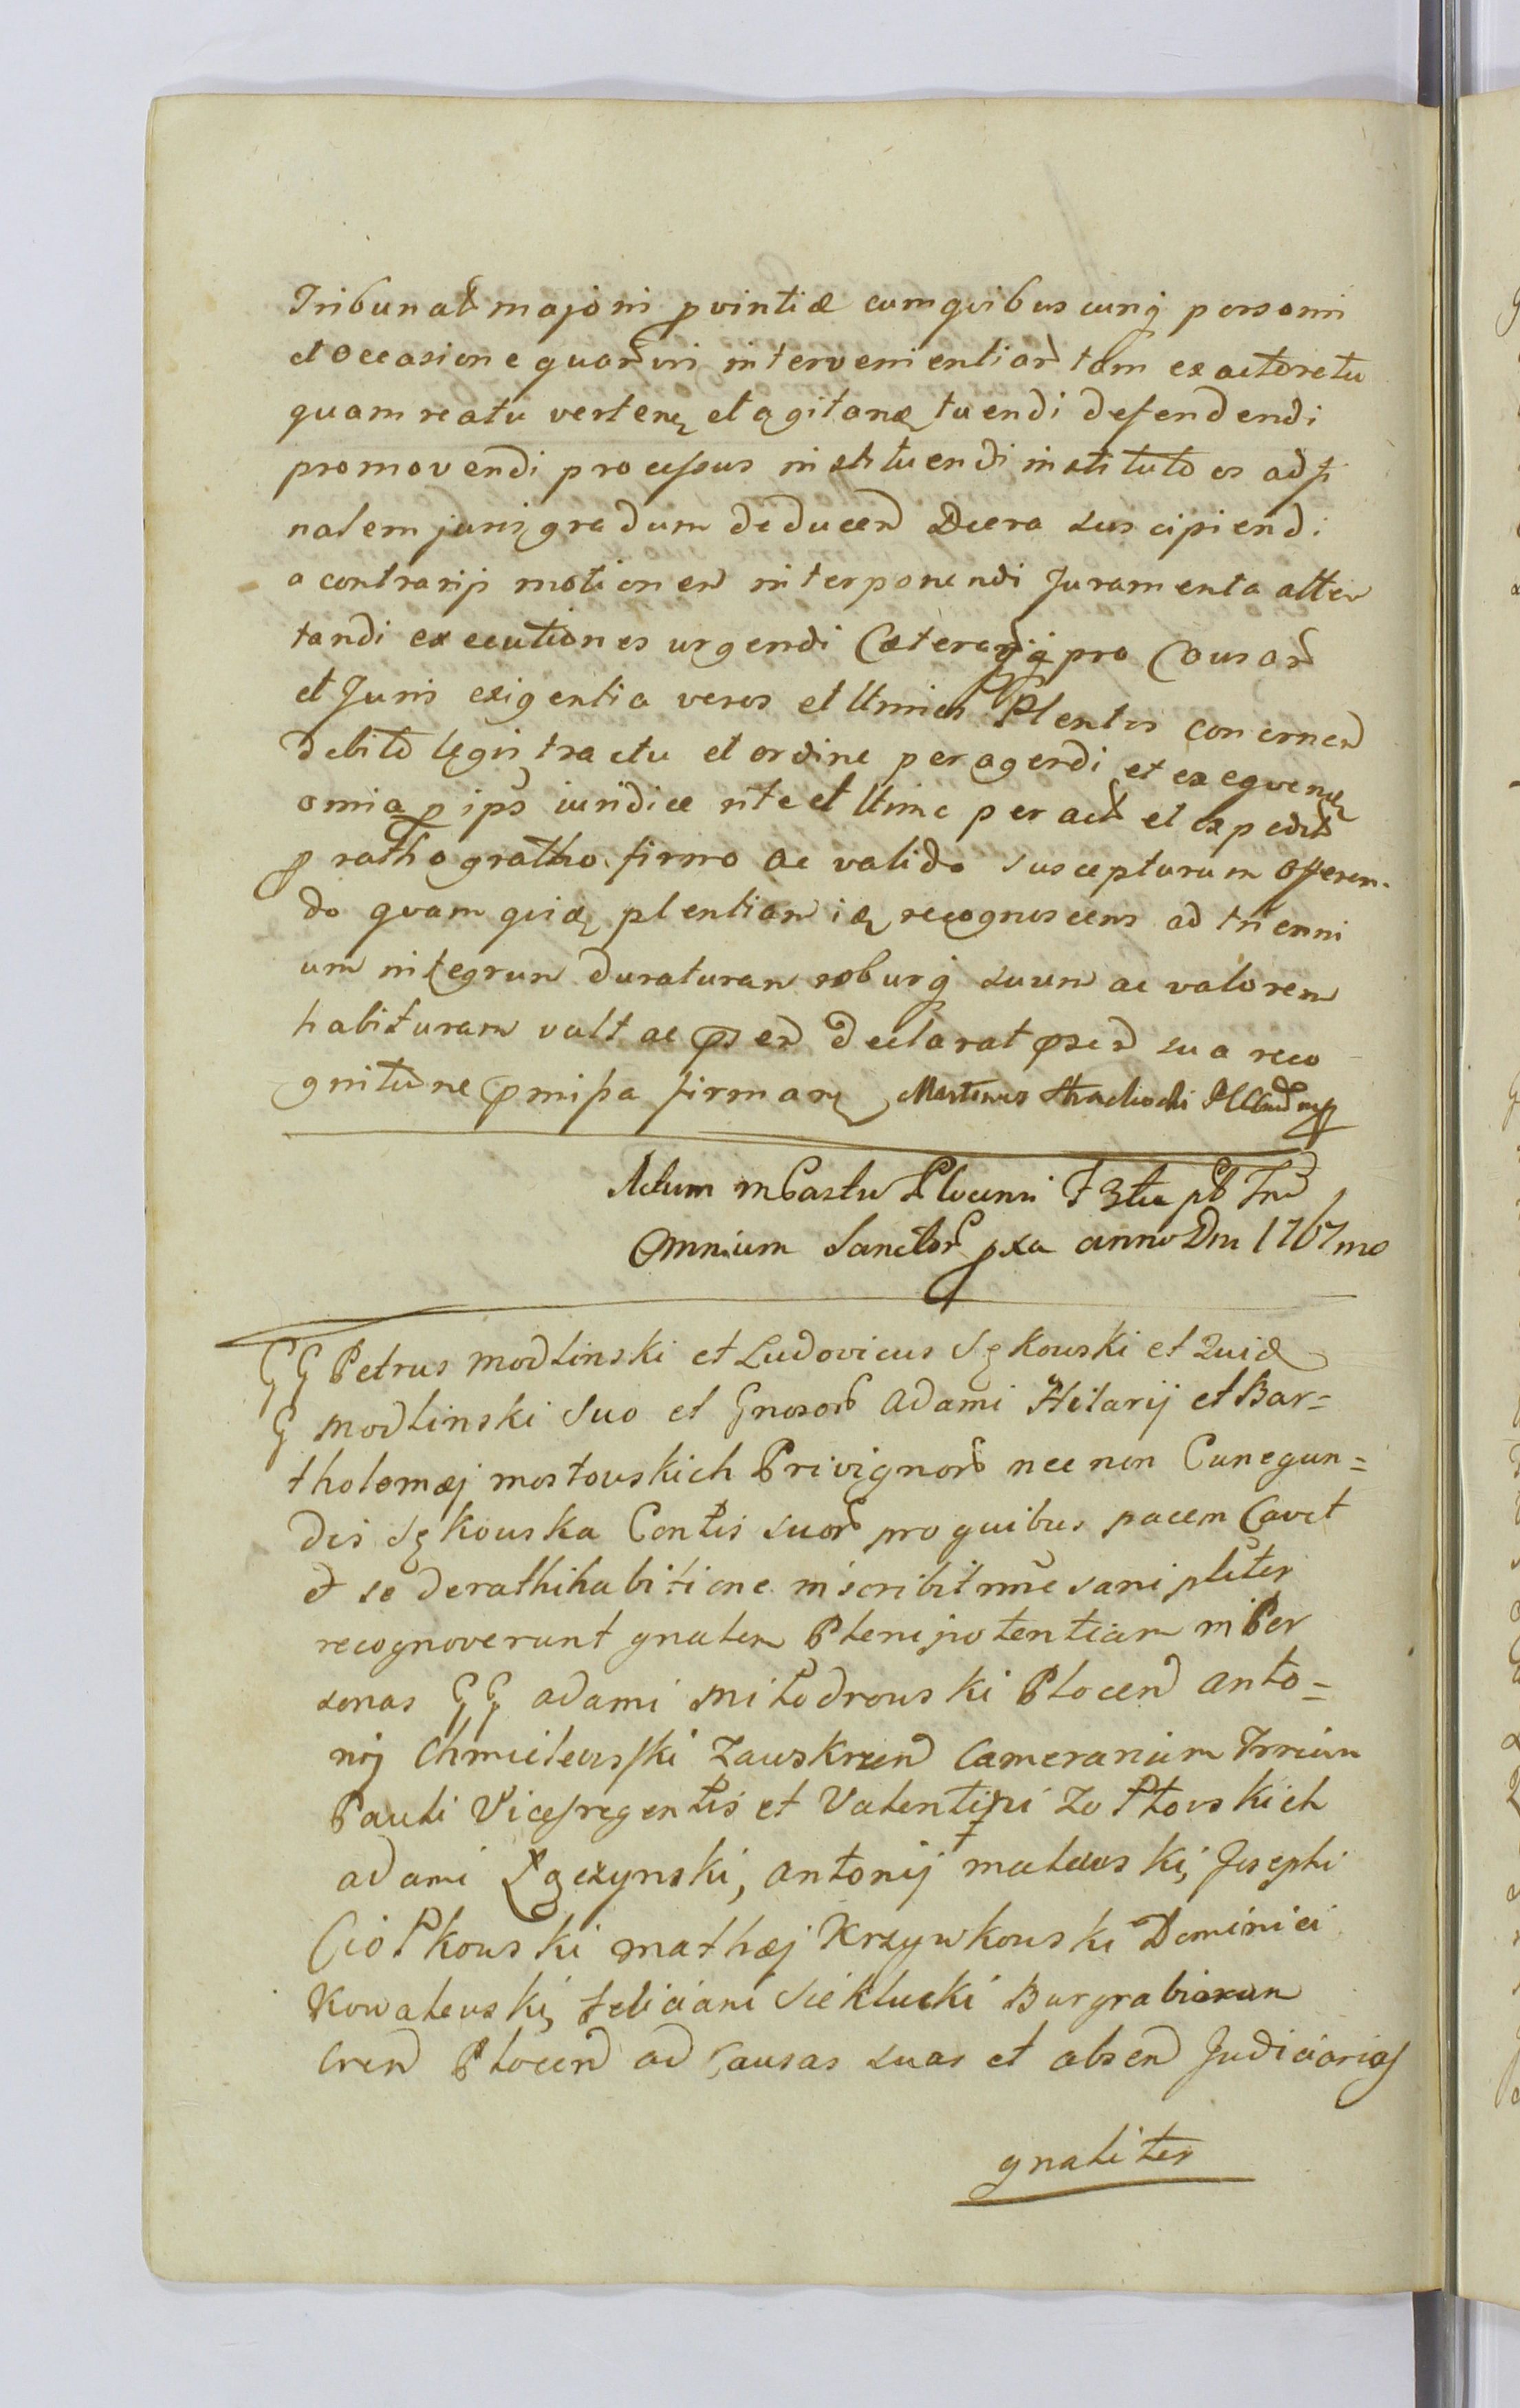 Tribunat majoris pvintiæ cum quibuscunq personis
et occasione quarvis intervenientiar tam ex actoretu
quam reatu verten et agitan tuendi defendendi
promovendi processus instituendi institutos ad fi
nalem juris gradum deducen Decra suscipiendi
a contrarijs motionem interponendi Juramenta atten
tandi executiones urgendi Cæteraq pro Causar
et Juris exigentia veros et llimos Plentos concernen
debito legis tractu et ordine peragendi et exequen
omia p ips iuridice rite et llime peract et expedit
p ratho gratho firmo ac valido suscepturum offeren-
do quam quid plentiam is recognoscens ad trienni
um integrum duraturam roburq suum ac valorem
habituram vult ac psen declarat psen sua reco
gnitione pmissa firman Martinus
Actum in Castro Plocensi F 3tia pt Fnd
Omnium Sanctor pxa anno Dni 1767mo
GG Petrus Modlinski et Ludovicus Sękowski et Quid
G Modlinski Suo et Gnosor Adami Hilarij et Bar=
tholomæj Mostowskich Privignor nec non Cunegun=
dis Sękowska Contis suor pro quibus pacem Cavet
et se de rathihabitione inscribit mne sani pliter
recognoverunt gnalem Plenipotentiam in Per
sonas GG Adami Miłodrowski Plocen Anto=
nij Chmielewski Zawskrzen Camerarium Trrium
Pauli Vicesregentis et Valentini Zołtowskich
Adami Łączynski, Antonij Malewski, Josephi
Ciołkowski Mathæj Krzywkowski Dominici
Kowalewski, Feliciani Sieklucki Burgrabiorum
Cren Plocen ad Causas suas et absen Judiciarias
gnaliter